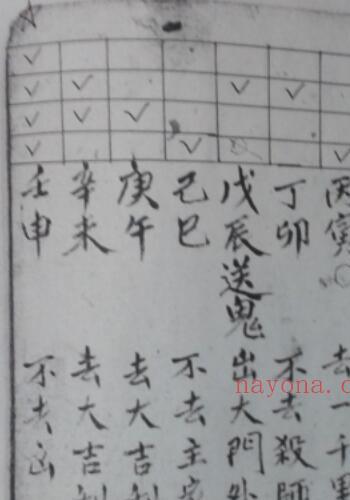 丙寅
去一千里
丁卯
不去殺師
戊辰送鬼出大門外
己巳
不去主家
庚午
去大吉利
辛未
去大吉利
壬申
不去凶
nayona.c